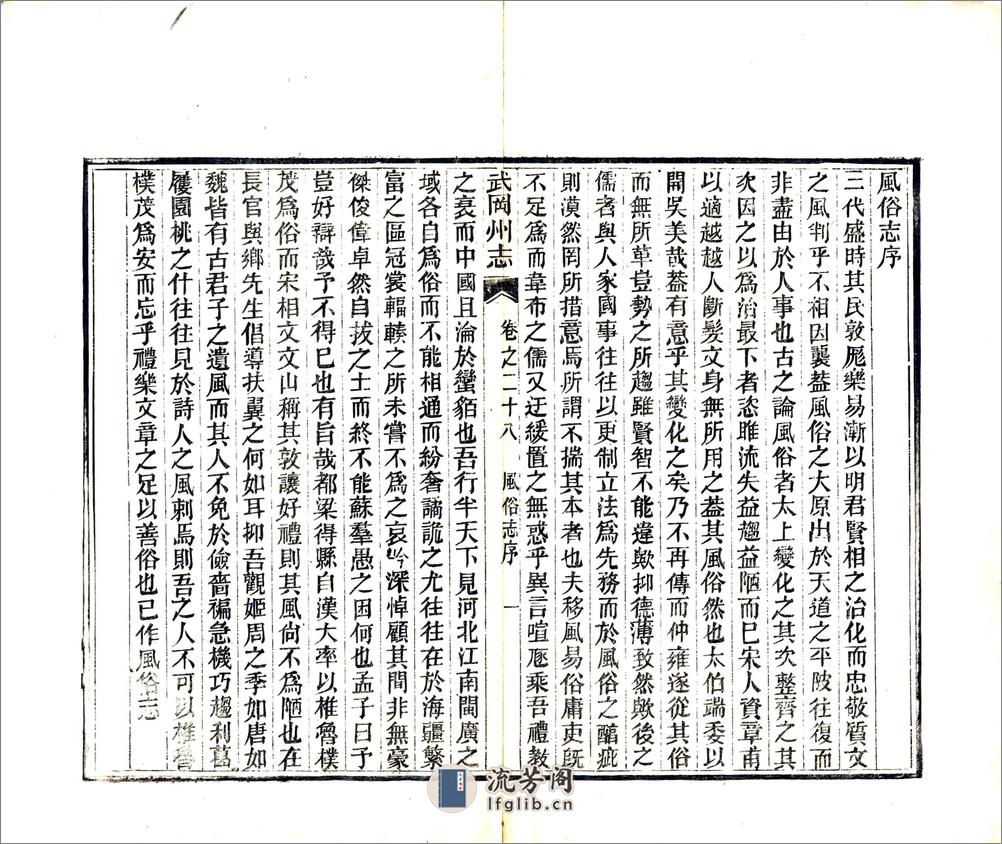 風俗志序
三代盛時其民敦厖樂易漸以明君賢相之治化而忠敬質文
之風判乎不相因襲葢風俗之大原出於天道之平陂往復而
非盡由於人事也古之論風俗者太上變化之其次整齊之其
次因之以爲治最下者恣雎流失益趨益陋而巳宋人資章甫
以適越越人斷髮文身無所用之葢其風俗然也太伯端委以
開吳美哉葢有意乎其變化之矣乃不再傳而仲雍遂從其俗
而無所革豈勢之所趨雖賢智不能違歟抑德薄致然歟後之
儒者與人家國事往往以更制立法爲先務而於風俗之醕疵
則漠然罔所措意焉所謂不揣其本者也夫移風易俗庸吏旣
不足爲而韋布之儒又迂緩置之無惑乎異言喧豗乘吾禮教
武岡州志
卷之二十八
風俗志序
一
之衰而中國且淪於蠻貊也吾行半天下見河北江南閩廣之
域各自爲俗而不能相通而紛奢譎詭之尤往往在於海疆繁
富之區冠裳輻輳之所未嘗不爲之哀吟深悼顧其間非無豪
傑俊偉卓然自拔之士而終不能蘇羣愚之困何也孟子曰予
豈好辯哉予不得巳也有旨哉都梁得縣自漢大率以椎魯樸
茂爲俗而宋相文文山稱其敦讓好禮則其風尙不爲陋也在
長官與鄉先生倡導扶翼之何如耳抑吾觀姬周之季如唐如
魏皆有古君子之遺風而其人不免於儉嗇褊急機巧趨利葛
屨園桃之什往往見於詩人之風刺焉則吾之人不可以椎魯
樸茂爲安而忘乎禮樂文章之足以善俗也巳作風俗志
流芳阁
lfglib.cn